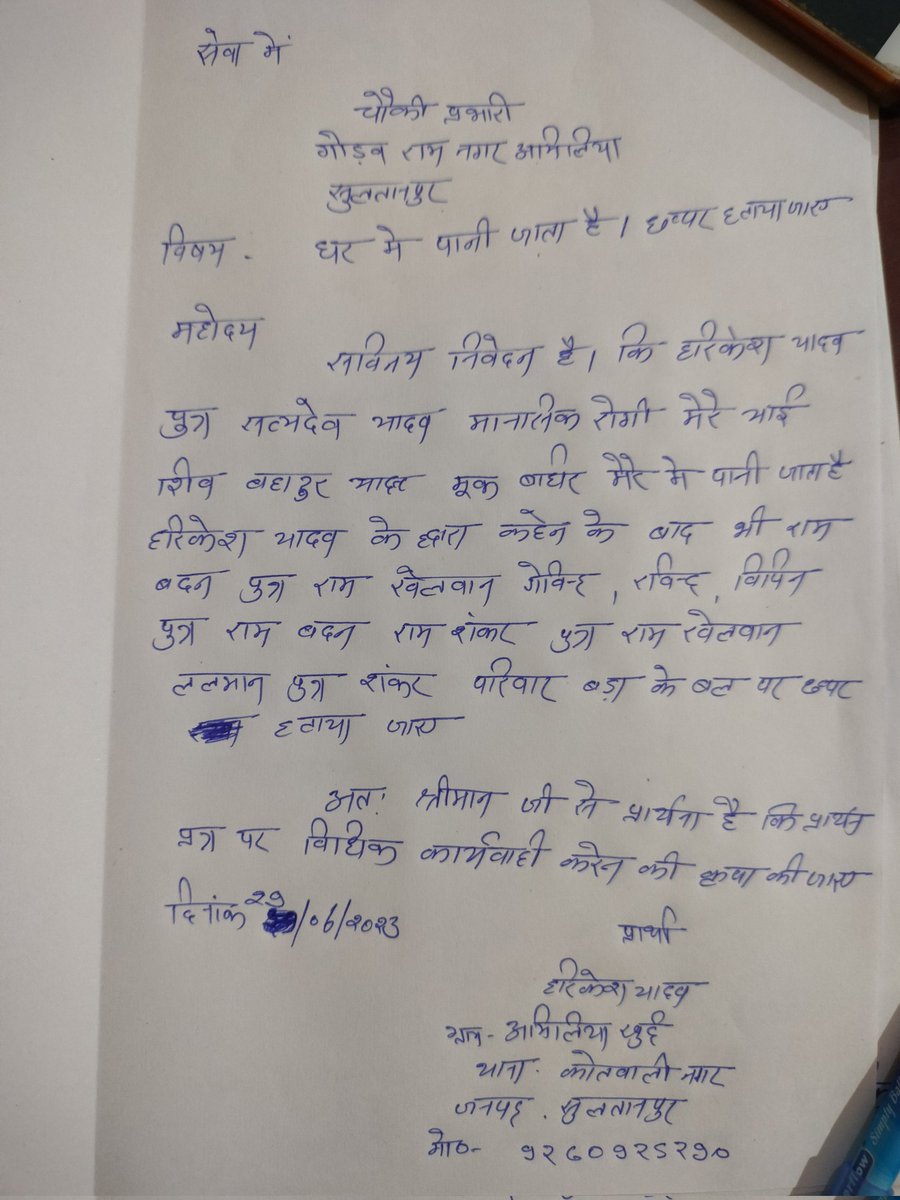 सेवा में
चौकी प्रभारी
गोड़व राम नगर अमिलिया
सुलतानपुर
विषय - घर मे पानी जाता है। छप्पर हटाया जाए
महोदय
सविनय निवेदन है। कि हरिकेश यादव
पुत्र सत्यदेव यादव मानसिक रोगी मेरे भाई
शिव बहादुर यादव मूक बधिर मेरे मे पानी जाता है
हरिकेश यादव के द्वारा कहेन के बाद भी राम
बदन पुत्र राम खेलवान गोविन्द, रविन्द, विपिन
पुत्र राम बदन राम शंकर पुत्र राम खेलवान
ललमान पुत्र शंकर परिवार बड़ा के बल पर छपर
हटाया जाए
अतः श्रीमान जी से प्रार्थना है कि प्रार्थना
पत्र पर विधिक कार्यवाही करेन की कृपा की जाए
दिनांक २९/०6/२०२३
प्रार्थी
हरिकेश यादव
ग्राम - अमिलिया खुर्द
थाना - कोतवाली नगर
जनपद - सुलतानपुर
मो०-